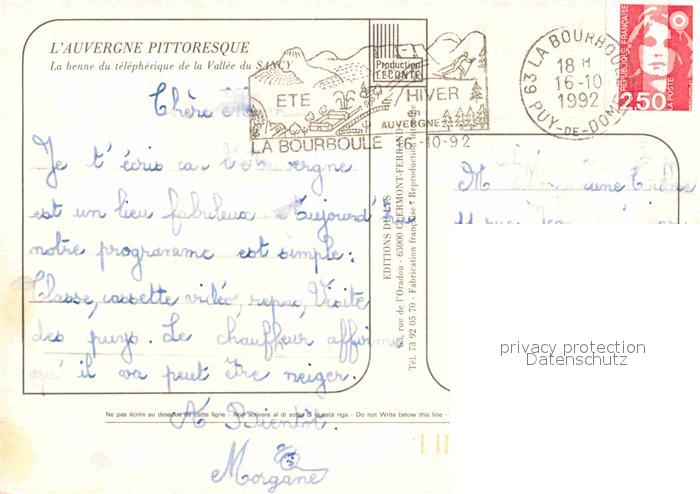 L'AUVERGNE PITTORESQUE
La benne du téléphérique de la Vallée du SANCY
Production
LECONTE
ETE
HIVER
en
AUVERGNE
LA BOURBOULE 16-10-92
63 LA BOURBOULE
18 H
16-10
1992
PUY-DE-DOME
REPUBLIQUE FRANÇAISE
LA POSTE
2,50
Chère
Je t'écris car l'Auvergne
est un lieu fabuleux Aujourd'hui
notre programme est simple:
Classe, cassette vidéo, repas, Visite
des puys. Le chauffeur affirme
qu'il va peut être neiger.
A Bientôt.
Morgane
EDITIONS DU LYS
63, rue de l'Oradou - 63000 CLERMONT-FERRAND
Tél. 73 92 05 70 - Fabrication française - Reproduction interdite
M
privacy protection
Datenschutz
Ne pas écrire au dessous de cette ligne - Non scrivere al di sotto di questa riga - Do not Write below this line -